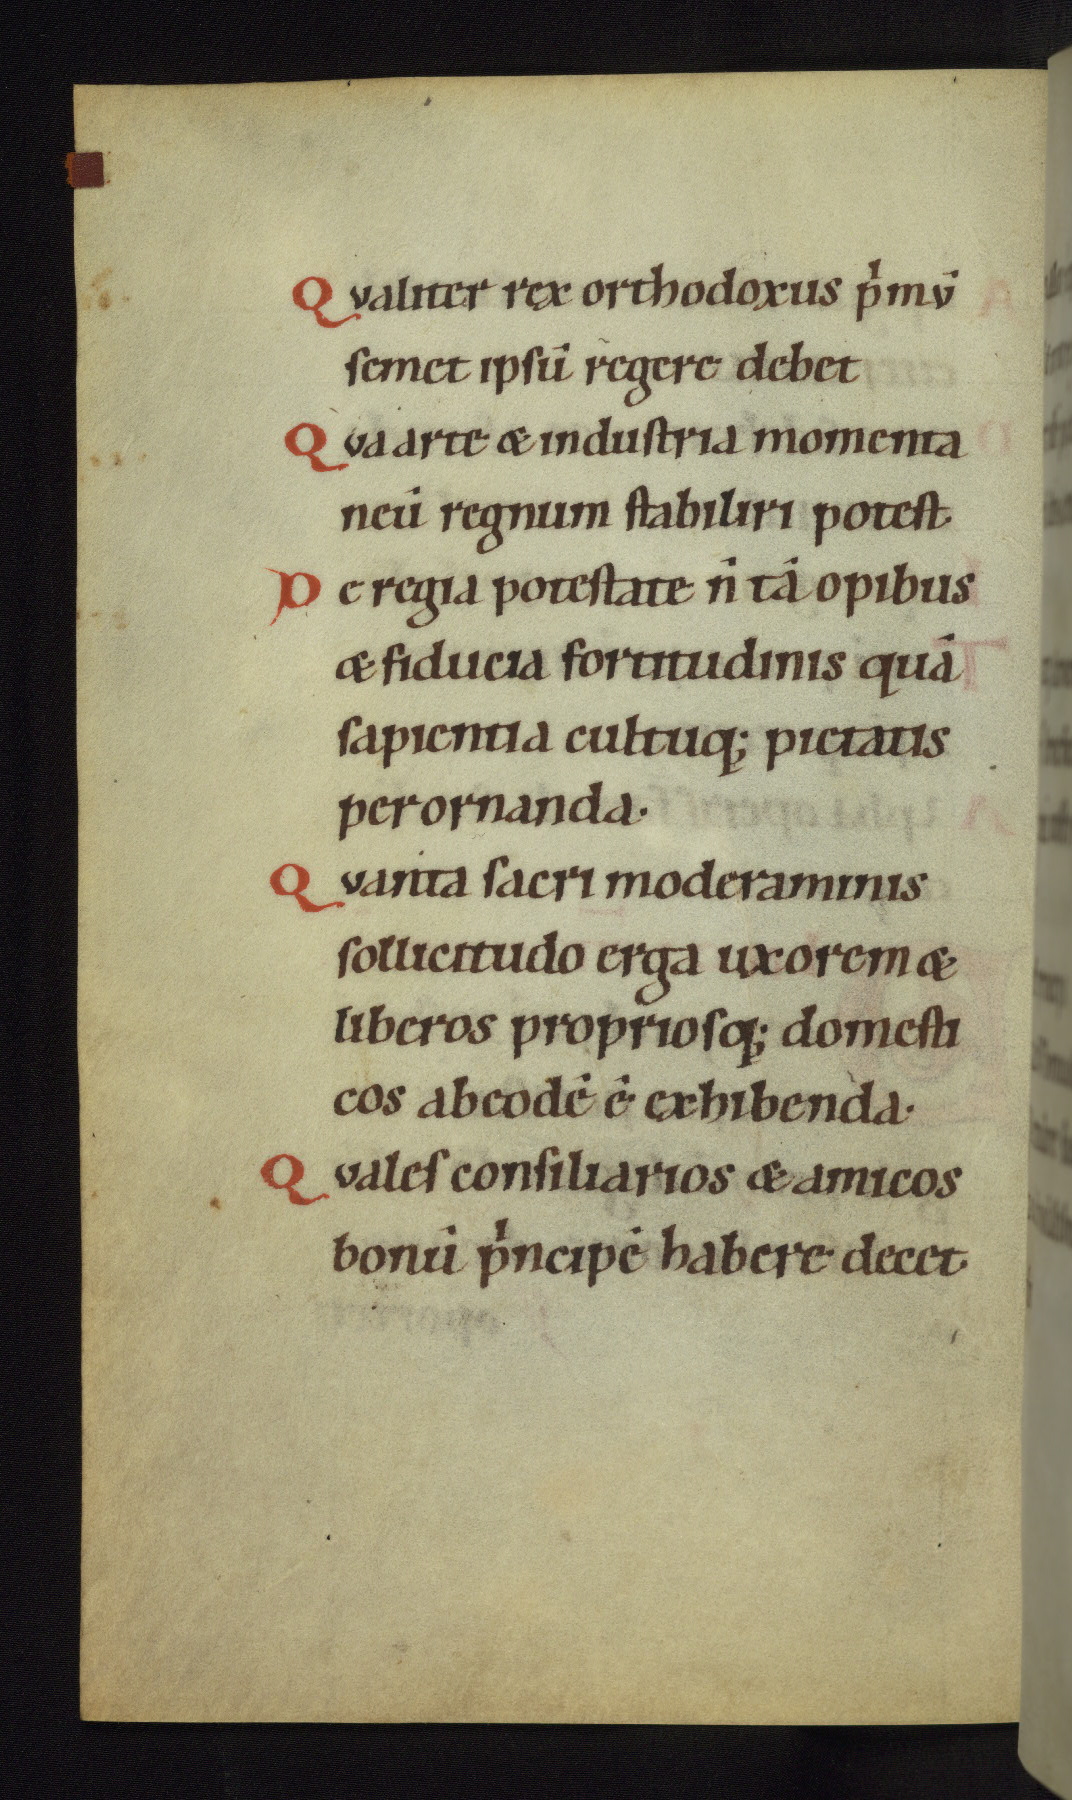 Qvaliter rex orthodoxus p̓mv̄
ſemet ipſū regere debet
Qva arte & induſtria momenta
neū regnum ſtabiliri poteſt.
De regia poteſtate n̄ tā opibus
& fiducia fortitudinis quā
ſapientia cultuq; pietatis
perornanda.
Qvanta ſacri moderaminis
ſollicitudo erga uxorem &
liberos proprioſq; domeſti
cos ab eodē ē exhibenda.
Qvaleſ conſiliarios & amicos
bonū p̓ncipē habere decet.